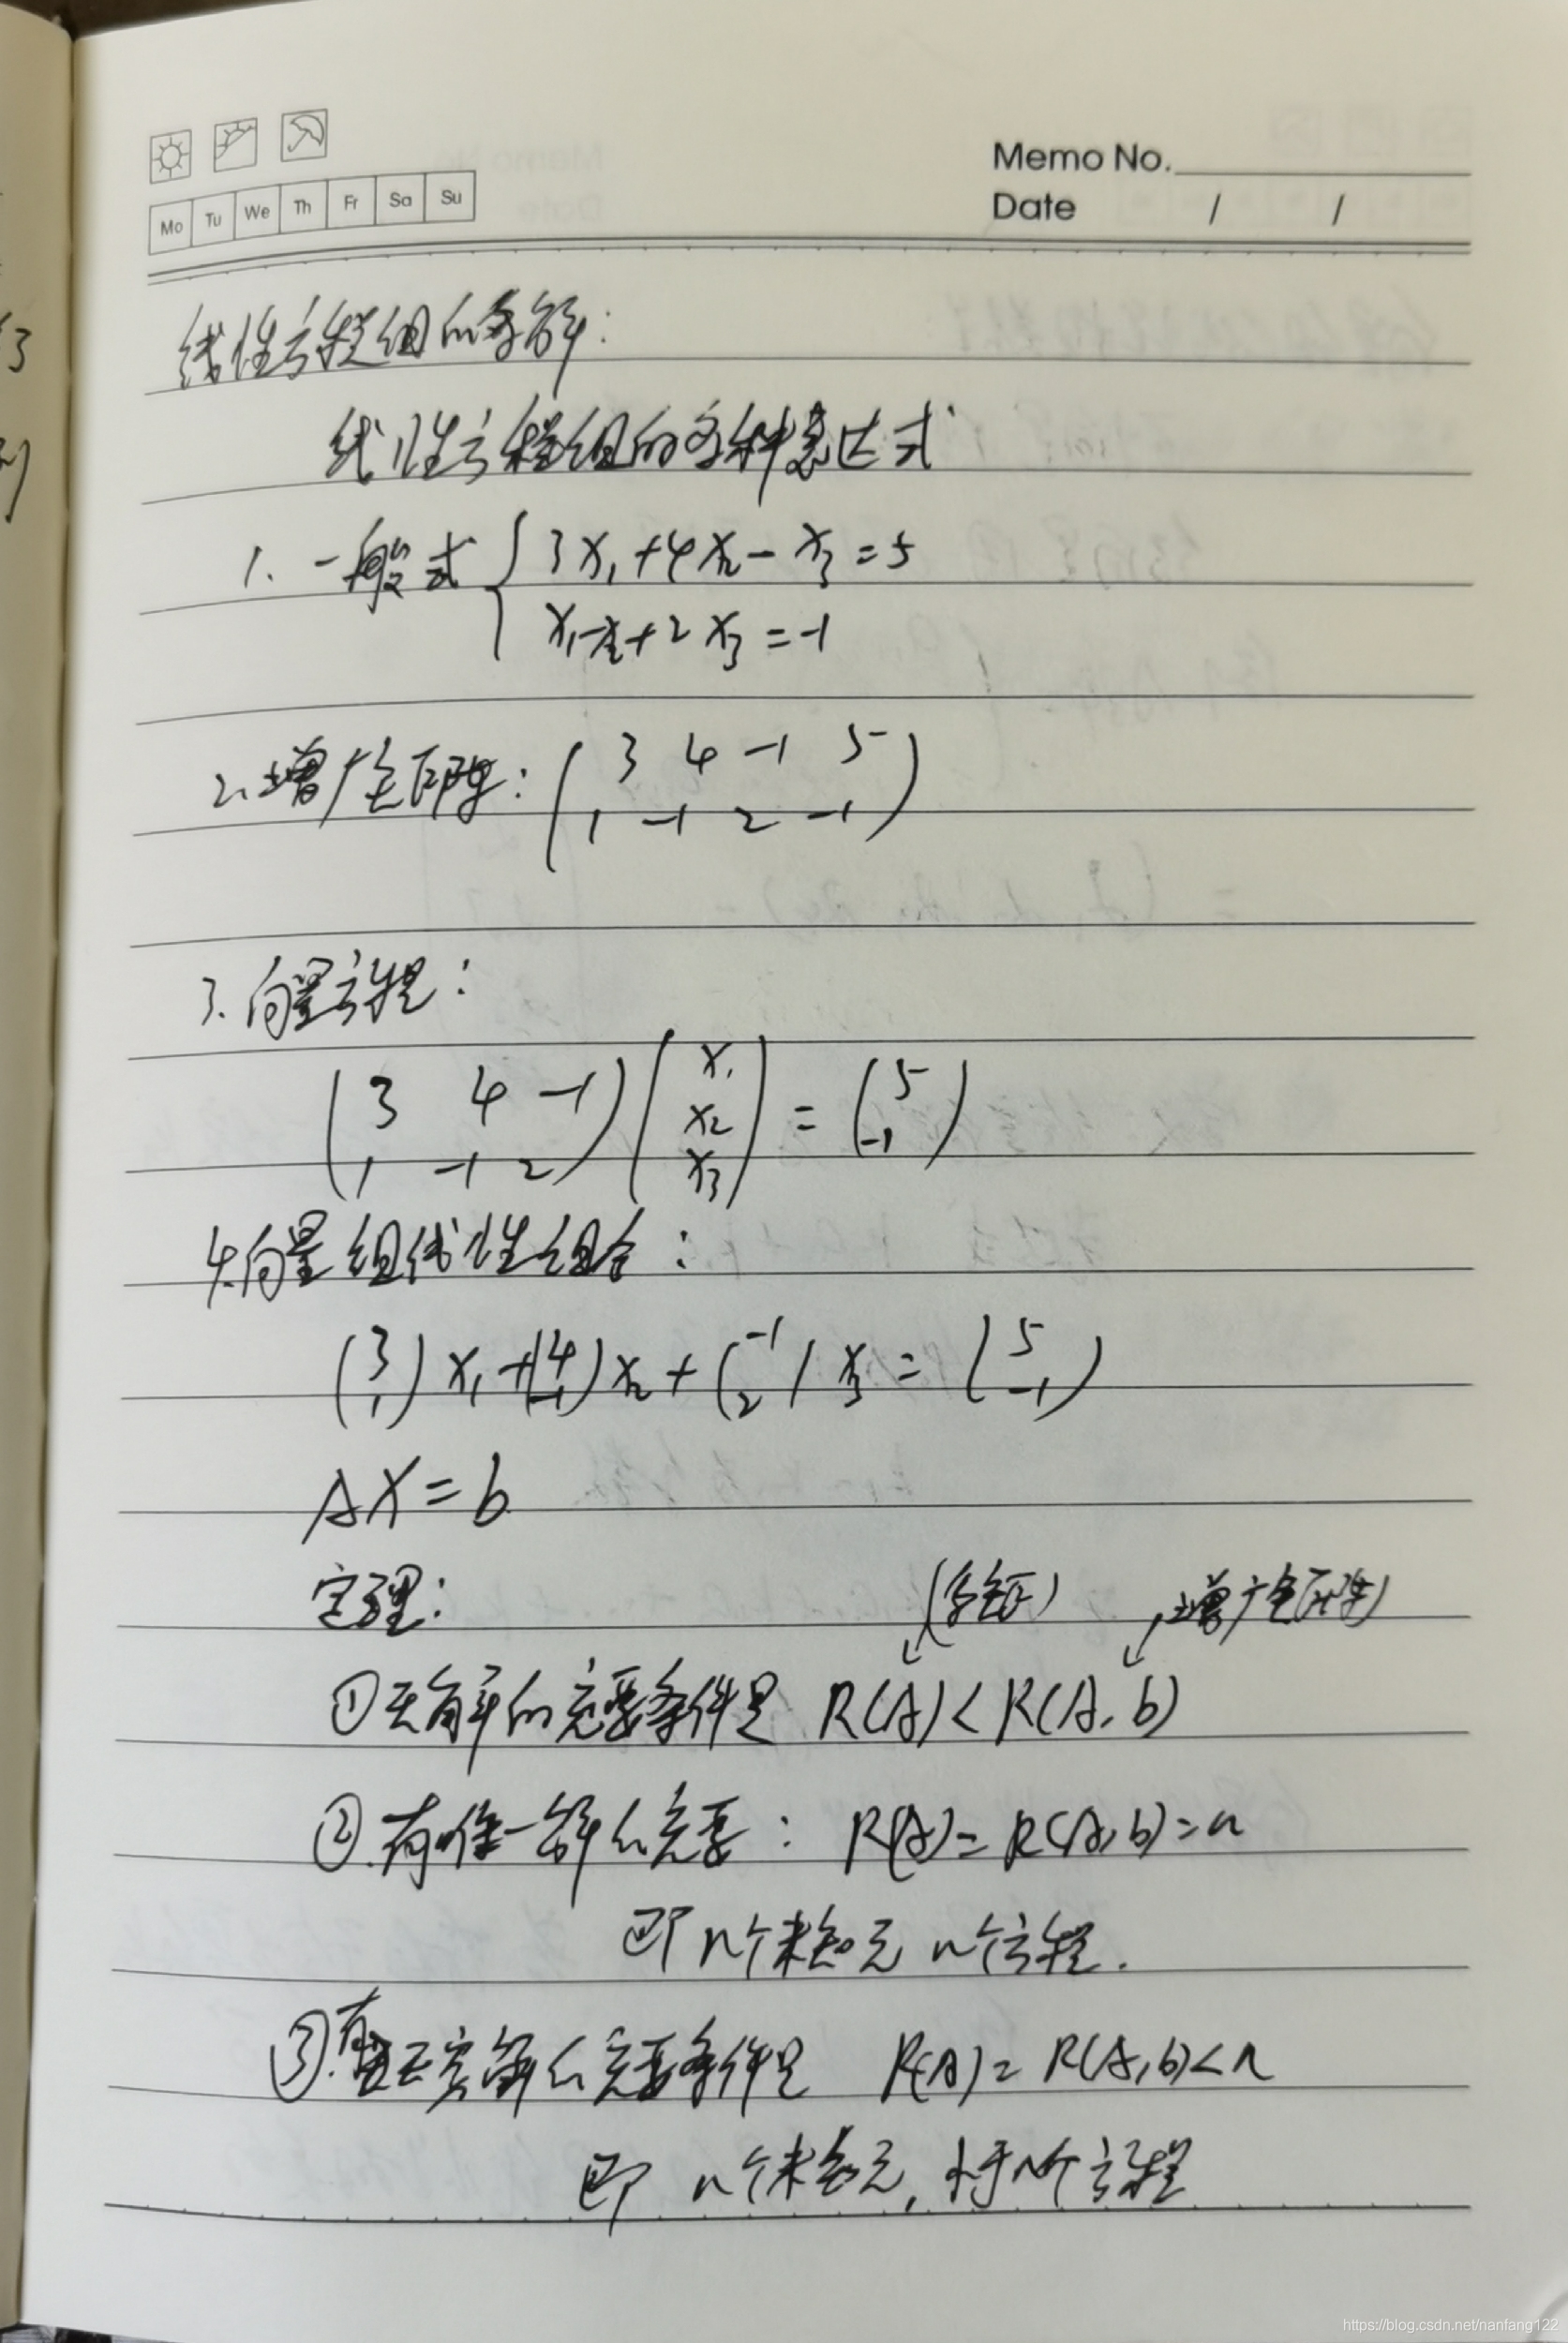 Memo No.
Mo Tu We Th Fr Sa Su
Date / /
线性方程组的求解:
线性方程组的多种表达式
1. 一般式 { 3x₁+4x₂-x₃=5
x₁-x₂+2x₃=-1
2. 增广矩阵: ( 3 4 -1 5
1 -1 2 -1 )
3. 向量方程:
( 3 4 -1
1 -1 2 ) ( x₁
x₂
x₃ ) = ( 5
-1 )
4. 向量组线性组合:
( 3
1 ) x₁ + ( 4
-1 ) x₂ + ( -1
2 ) x₃ = ( 5
-1 )
AX=b
定理:
增广矩阵)
①无解的充要条件是 R(A)<R(A,b)
②.有唯一解的充要: R(A)=R(A,b)=n
即 n个未知元 n个方程.
③.有无穷解的充要条件是 R(A)=R(A,b)<n
即 n个未知元, 小于n个方程
https://blog.csdn.net/nanfang122